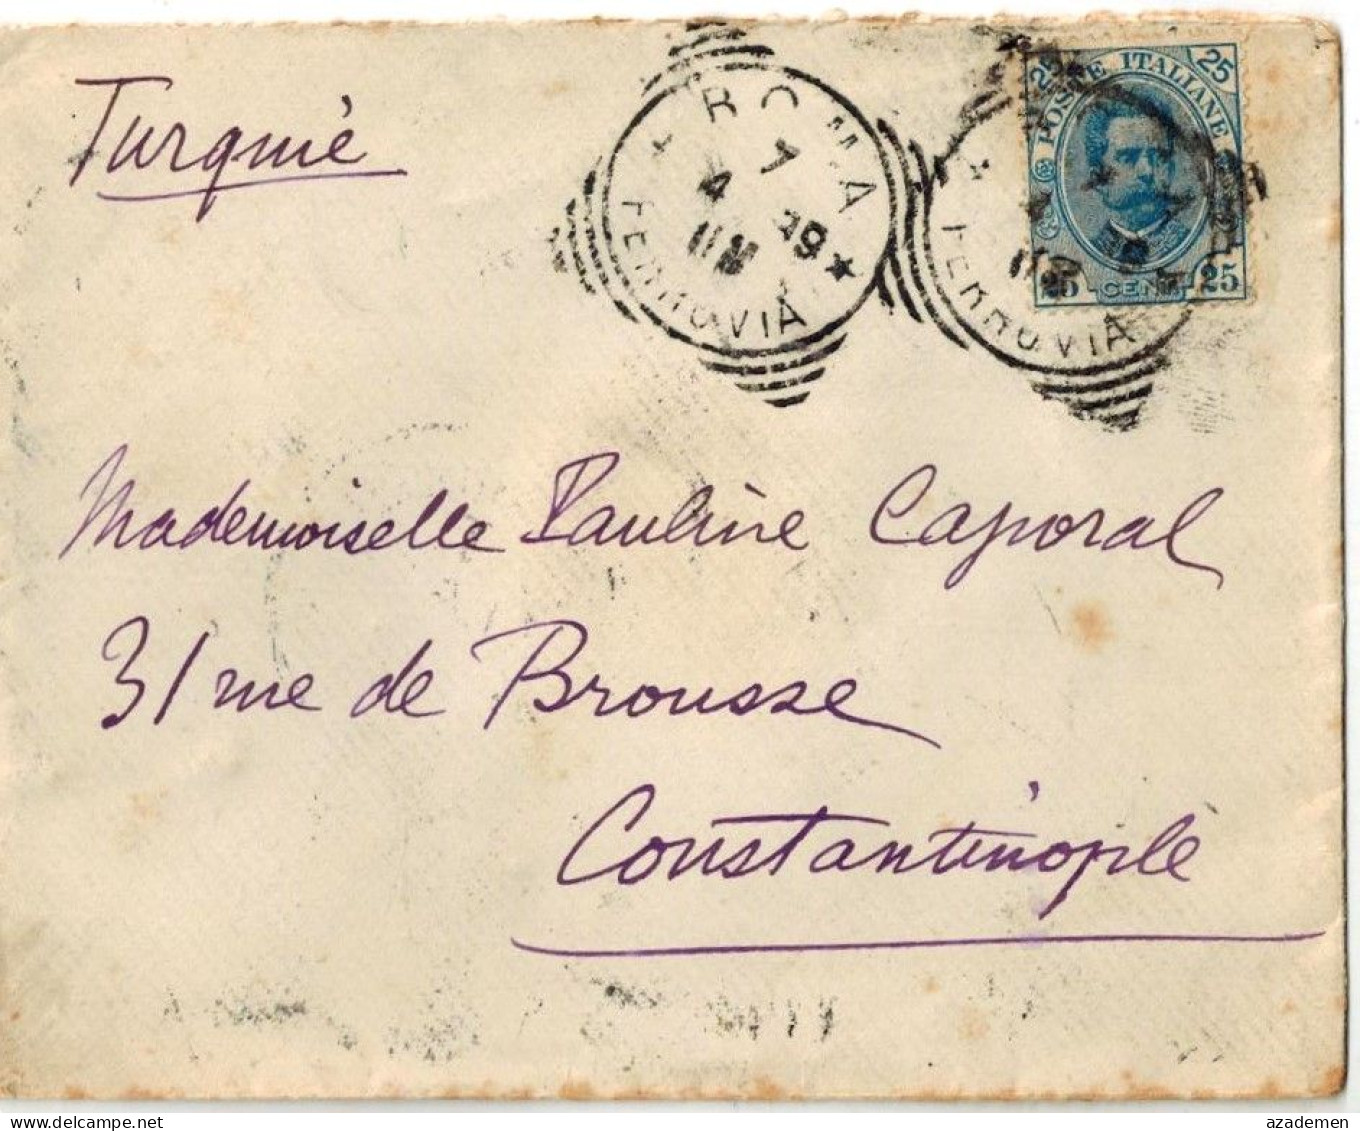 Turquie
ROMA
7
4 99
11M
FERROVIA
25 POSTE ITALIANE 25
25 CENT. 25
FERROVIA
Mademoiselle Pauline Caporal
31 rue de Brousse
Constantinople
azademen